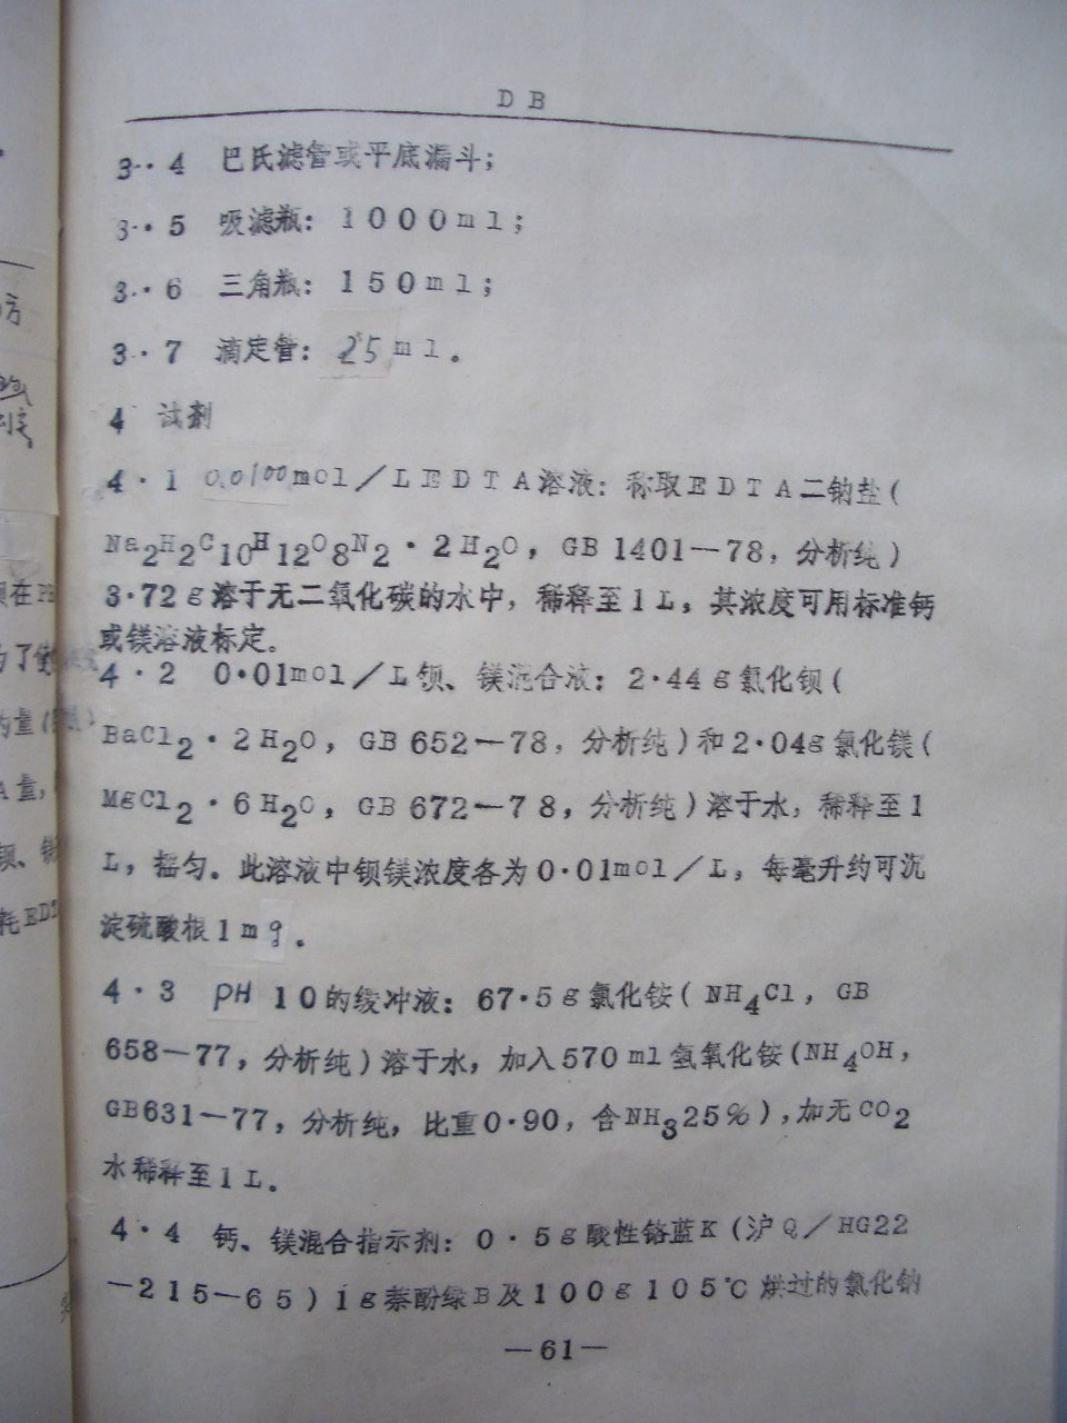 DB
3·4 巴氏滤管或平底漏斗；
3·5 吸滤瓶：1000ml；
3·6 三角瓶：150ml；
3·7 滴定管：25ml。
4 试剂
4·1 0.0100mol／LEDTA溶液：称取EDTA二钠盐（
Na₂H₂C₁₀H₁₂O₈N₂·2H₂O，GB1401—78，分析纯）
3·72g溶于无二氧化碳的水中，稀释至1L，其浓度可用标准钙
或镁溶液标定。
4·2 0·01mol／L钡、镁混合液：2·44g氯化钡（
BaCl₂·2H₂O，GB652—78，分析纯）和2·04g氯化镁（
MgCl₂·6H₂O，GB672—78，分析纯）溶于水，稀释至1
L，摇匀。此溶液中钡镁浓度各为0·01mol／L，每毫升约可沉
淀硫酸根1mg。
4·3 PH10的缓冲液：67·5g氯化铵（NH₄Cl，GB
658—77，分析纯）溶于水，加入570ml氢氧化铵（NH₄OH，
GB631—77，分析纯，比重0·90，含NH₃25％），加无CO₂
水稀释至1L。
4·4 钙、镁混合指示剂：0·5g酸性铬蓝K（沪Q／HG22
—215—65）1g萘酚绿B及100g105℃烘过的氯化钠
—61—